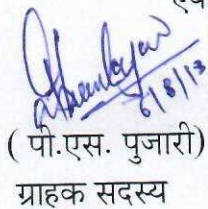 6/8/13
( पी.एस. पुजारी)
ग्राहक सदस्य